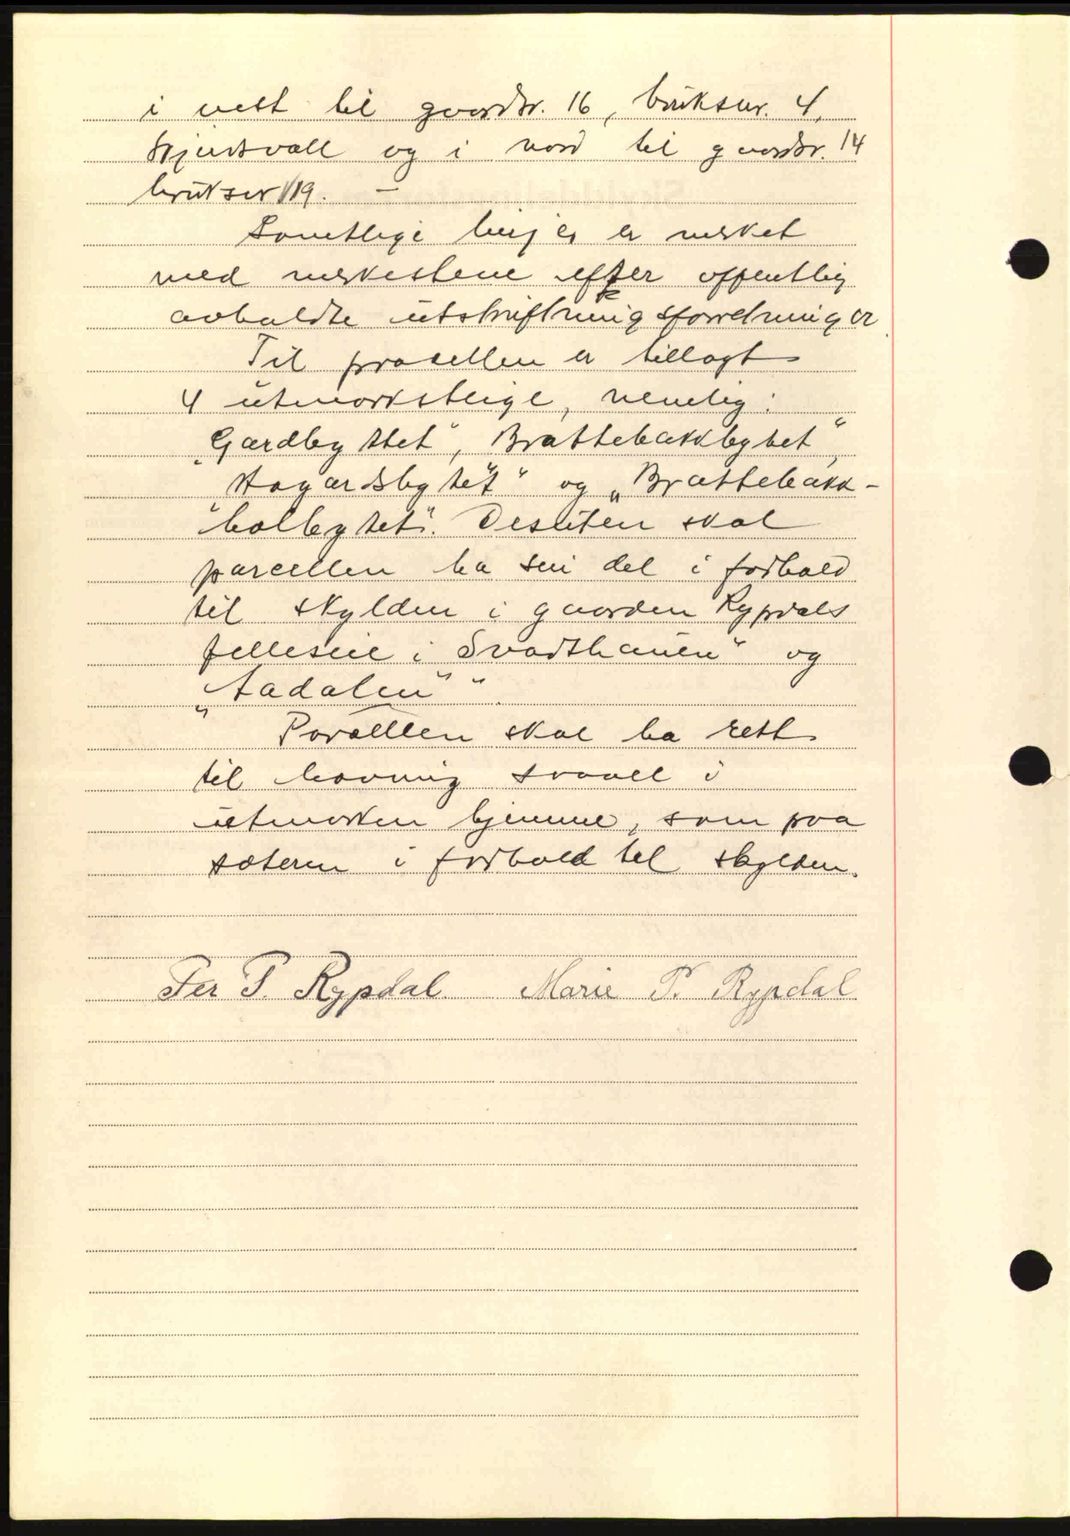 i vest til gaardsnr. 16, bruksnr. 4,
og i nord til gaardsnr. 14
bruksnr 19. –
Samtlige linjer er merket
med merkestene efter offentlig
avholdte utskiftningsforretninger.
Til parcellen er tillagt
4 utmarksteige, nemlig:
„Gardbytet", „Brattebakkbytet",
„Hagardsbytet" og „Brattebakk-
holbytet". Desuten skal
parcellen ha sin del i forhold
til skylden i gaarden Rypdals
felleseie i „Svartshauen" og
„Aadalen".
Parcellen skal ha rett
til havning saavel i
utmarken hjemme, som paa
sæteren i forhold til skylden.
Per P. Rypdal. Marie P. Rypdal